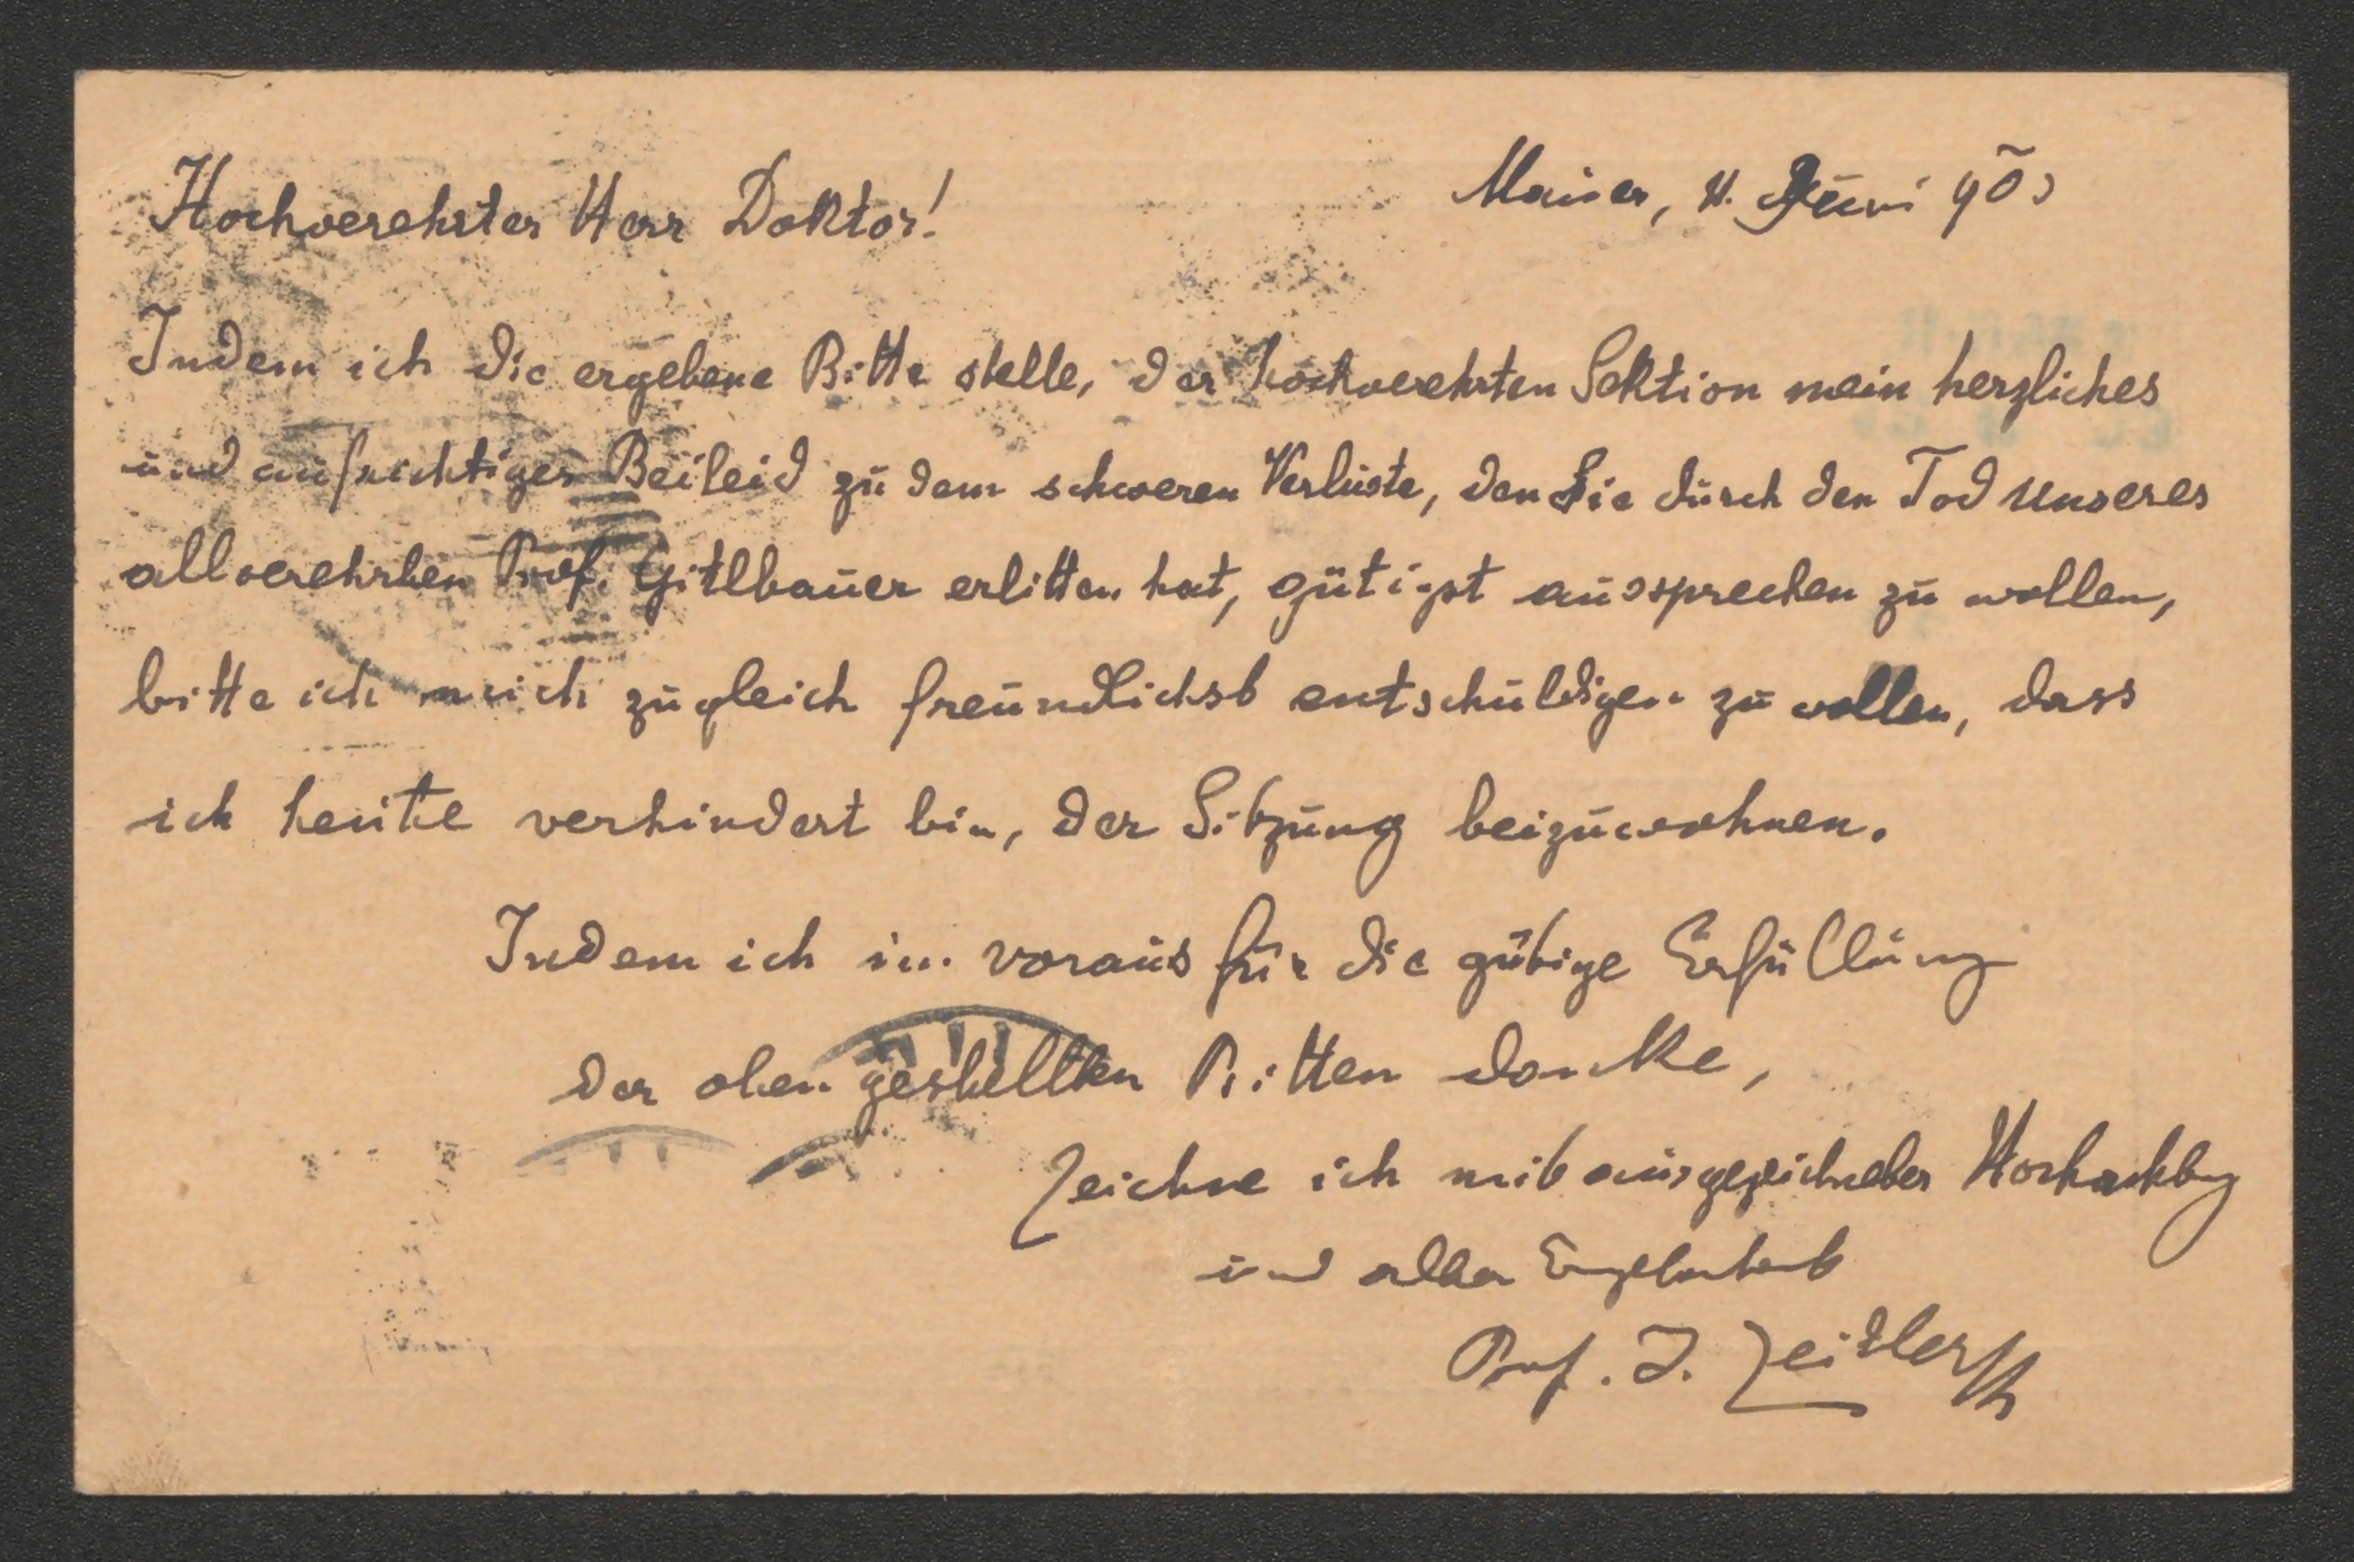 Hochverehrter Herr Doktor!
Mauer, 4. Juni 903
Indem ich die ergebene Bitte stelle, der hochverehrten Sektion mein herzliches
und aufrichtiges Beileid zu dem schweren Verluste, den Sie durch den Tod unseres
allverehrten Prof. Gitlbauer erlitten hat, gütigst aussprechen zu wollen,
bitte ich mich zugleich freundlichst entschuldigen zu wollen, dass
ich heute verhindert bin, der Sitzung beizuwohnen.
Indem ich im voraus für die gütige Erfüllung
der oben gestellten Bitten danke,
zeichne ich mit ausgezeichneter Hochachtung
und aller Ergebenheit
Prof. J. Zeidler